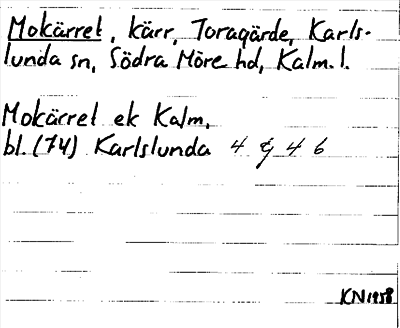 Mokärret, kärr, Toragärde, Karls-
lunda sn, Södra Möre hd, Kalm. l.
Mokärret ek Kalm.
bl. (74) Karlslunda 4 g 4 6
KN 1958